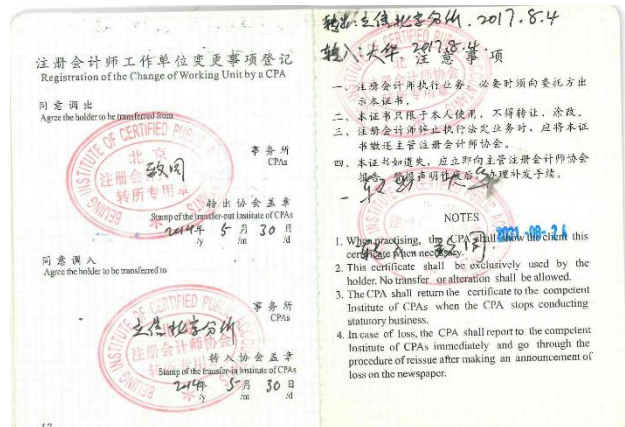 注册会计师工作单位变更事项登记
Registration of the Change of Working Unit by a CPA
同意调出
Agree the holder to be transferred from
BEIJING INSTITUTE OF CERTIFIED PUBLIC
北京
注册会
致同
转所专用章
事务所
CPAs
转出协会盖章
Stamp of the transfer-out Institute of CPAs
2014年 5月 30日
/y /m /d
同意调入
Agree the holder to be transferred to
立信北京分所
事务所
CPAs
注册会计师协会
转入协会盖章
Stamp of the transfer-in Institute of CPAs
2014年 5月 30日
/y /m /d
12
转出:立信北京分所. 2017.8.4
转入:大华 2017.8.4.
注意事项
一、注册会计师执行业务,必要时须向委托方出
示本证书。
二、本证书只限于本人使用,不得转让、涂改。
三、注册会计师停止执行法定业务时,应将本证
书缴还主管注册会计师协会。
四、本证书如遗失,应立即向主管注册会计师协会
报告,登报声明作废后,办理补发手续。
大华
NOTES
2021-08-24
转入 致同
1. When practising, the CPA shall show the client this
certificate when necessary.
2. This certificate shall be exclusively used by the
holder. No transfer or alteration shall be allowed.
3. The CPA shall return the certificate to the competent
Institute of CPAs when the CPA stops conducting
statutory business.
4. In case of loss, the CPA shall report to the competent
Institute of CPAs immediately and go through the
procedure of reissue after making an announcement of
loss on the newspaper.